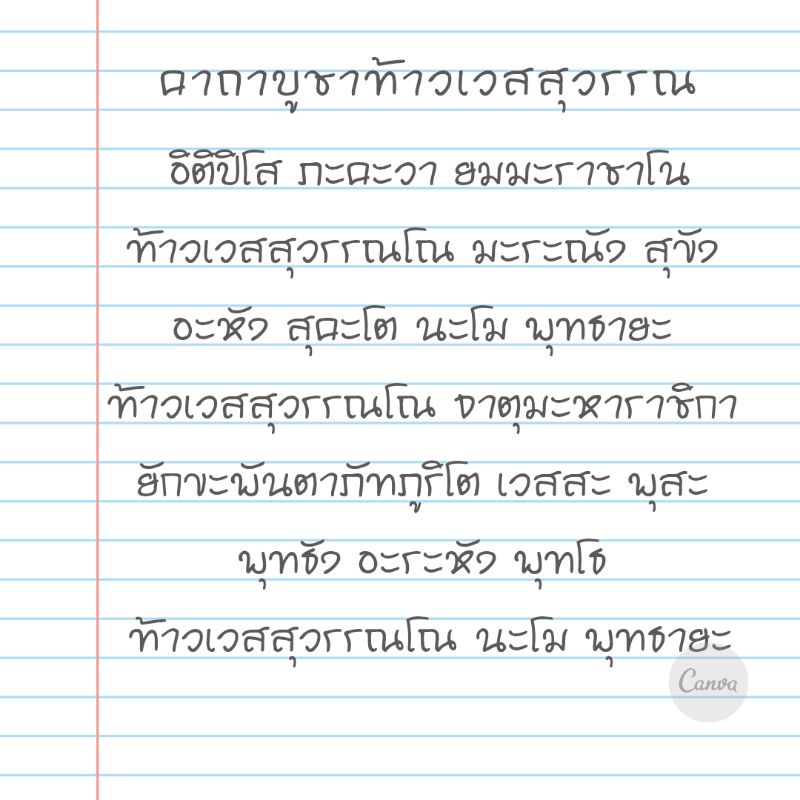 คาถาบูชาท้าวเวสสุวรรณ
อิติปิโส ภะคะวา ยมมะราชาโน
ท้าวเวสสุวรรณโณ มะระณัง สุขัง
อะหัง สุคะโต นะโม พุทธายะ
ท้าวเวสสุวรรณโณ จาตุมะหาราชิกา
ยักขะพันตาภัทภูริโต เวสสะ พุสะ
พุทธัง อะระหัง พุทโธ
ท้าวเวสสุวรรณโณ นะโม พุทธายะ
Canva